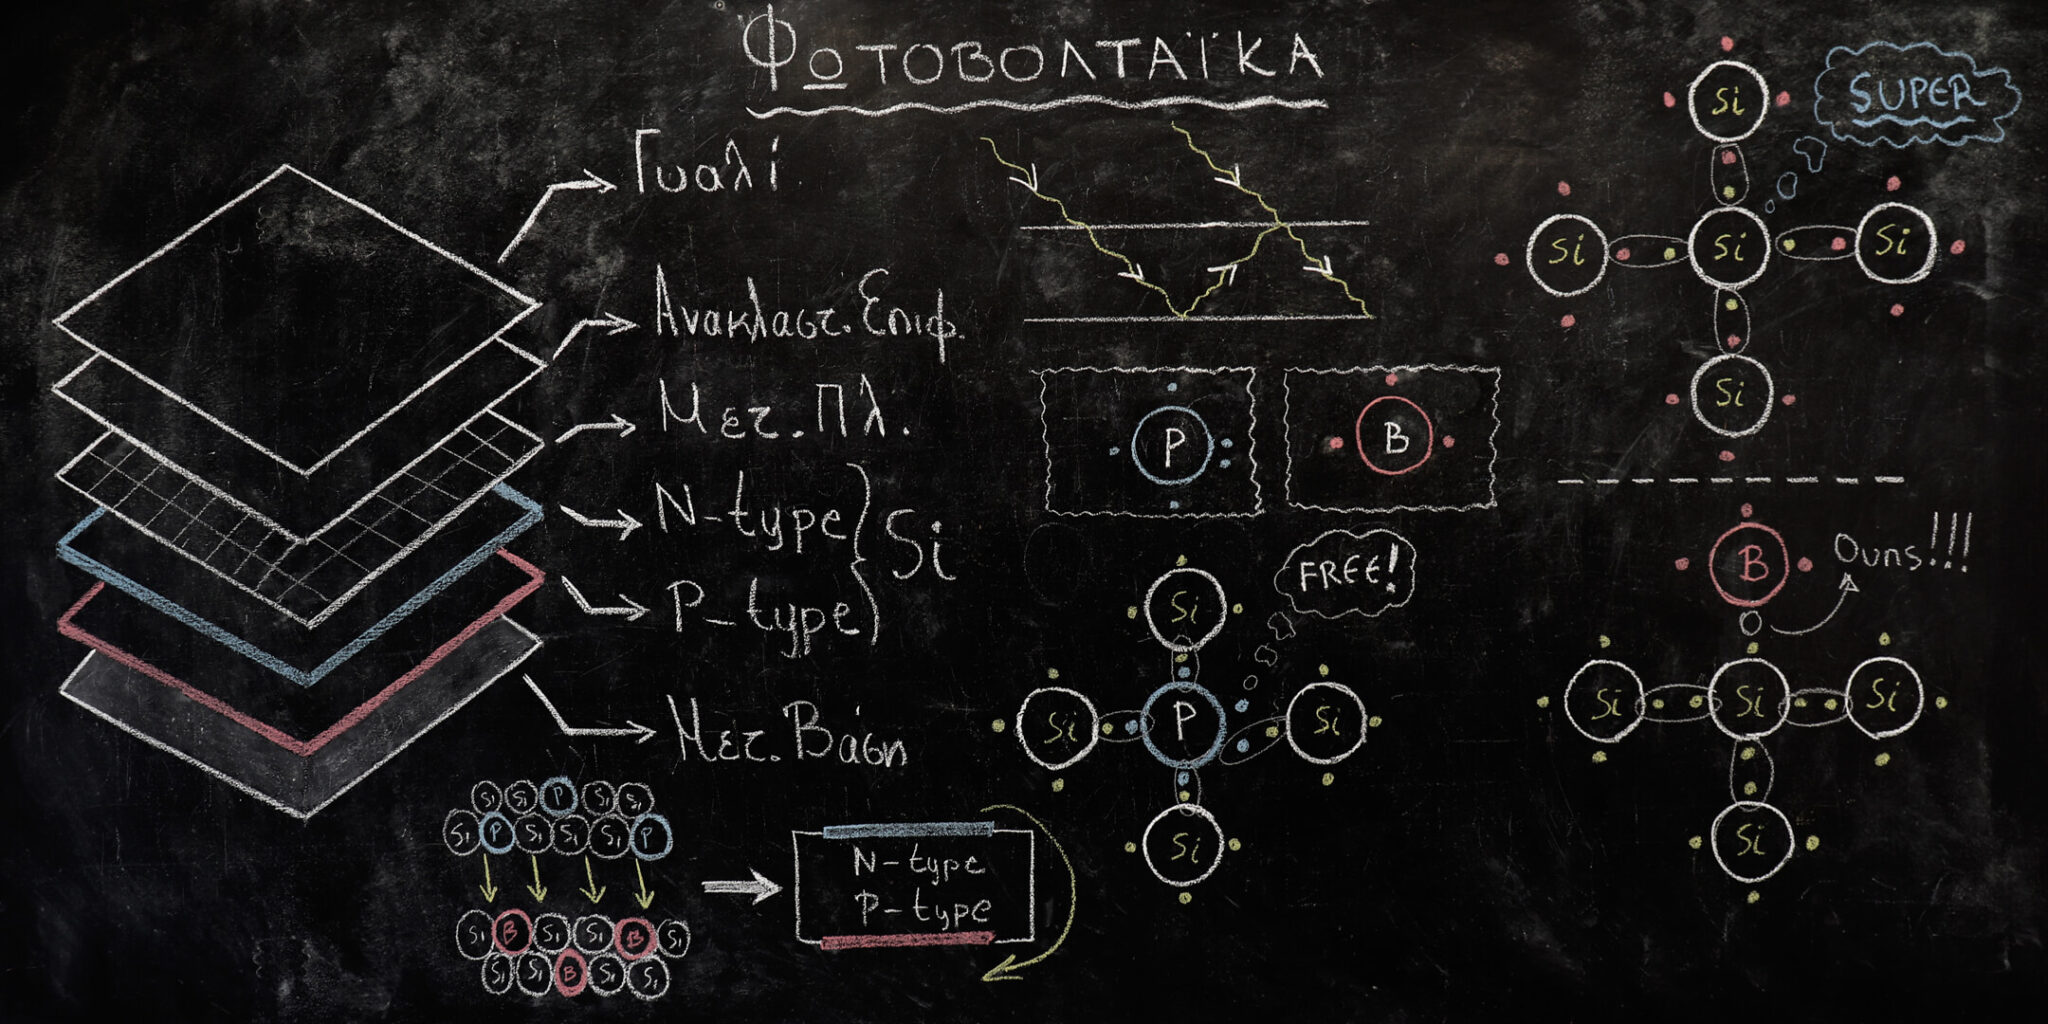 ΦΩΤΟΒΟΛΤΑΪΚΑ
Γυαλί
Ανακλαστ. Επιφ.
Μετ. Πλ.
N-type
P-type
Si
Μετ. Βάση
Si Si P Si Si
Si P Si Si Si P
Si B Si Si B Si
Si Si B Si Si
N-type
P-type
P
B
FREE!
Si
Si P Si
Si
SUPER
Si
Si Si Si
Si
B
Ουπς!!!
Si Si Si
Si